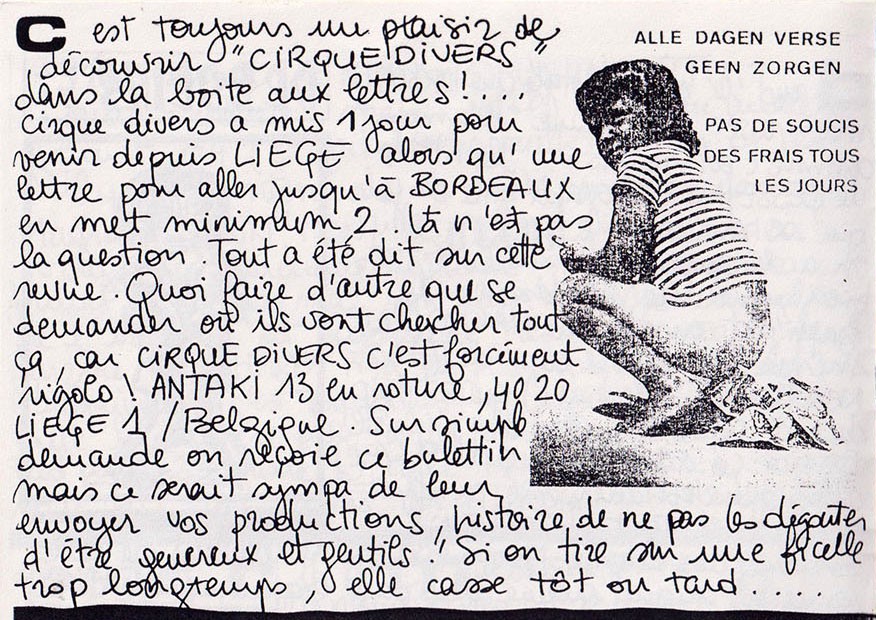 C est toujours un plaisir de
découvrir "CIRQUE DIVERS"
dans la boite aux lettres!....
Cirque divers a mis 1 jour pour
venir depuis LIEGE alors qu'une
lettre pour aller jusqu'à BORDEAUX
en met minimum 2. là n'est pas
la question. Tout a été dit sur cette
revue. Quoi faire d'autre que se
demander où ils vont chercher tout
ça, car CIRQUE DIVERS c'est forcément
rigolo! ANTAKI 13 en roture, 40 20
LIEGE 1 /Belgique. Sur simple
demande on reçoie ce bulettin
mais ce serait sympa de leur
envoyer vos productions, histoire de ne pas les dégouter
d'être genereux et gentils." Si on tire sur une ficelle
trop longtemps, elle casse tôt ou tard.....
ALLE DAGEN VERSE
GEEN ZORGEN
PAS DE SOUCIS
DES FRAIS TOUS
LES JOURS